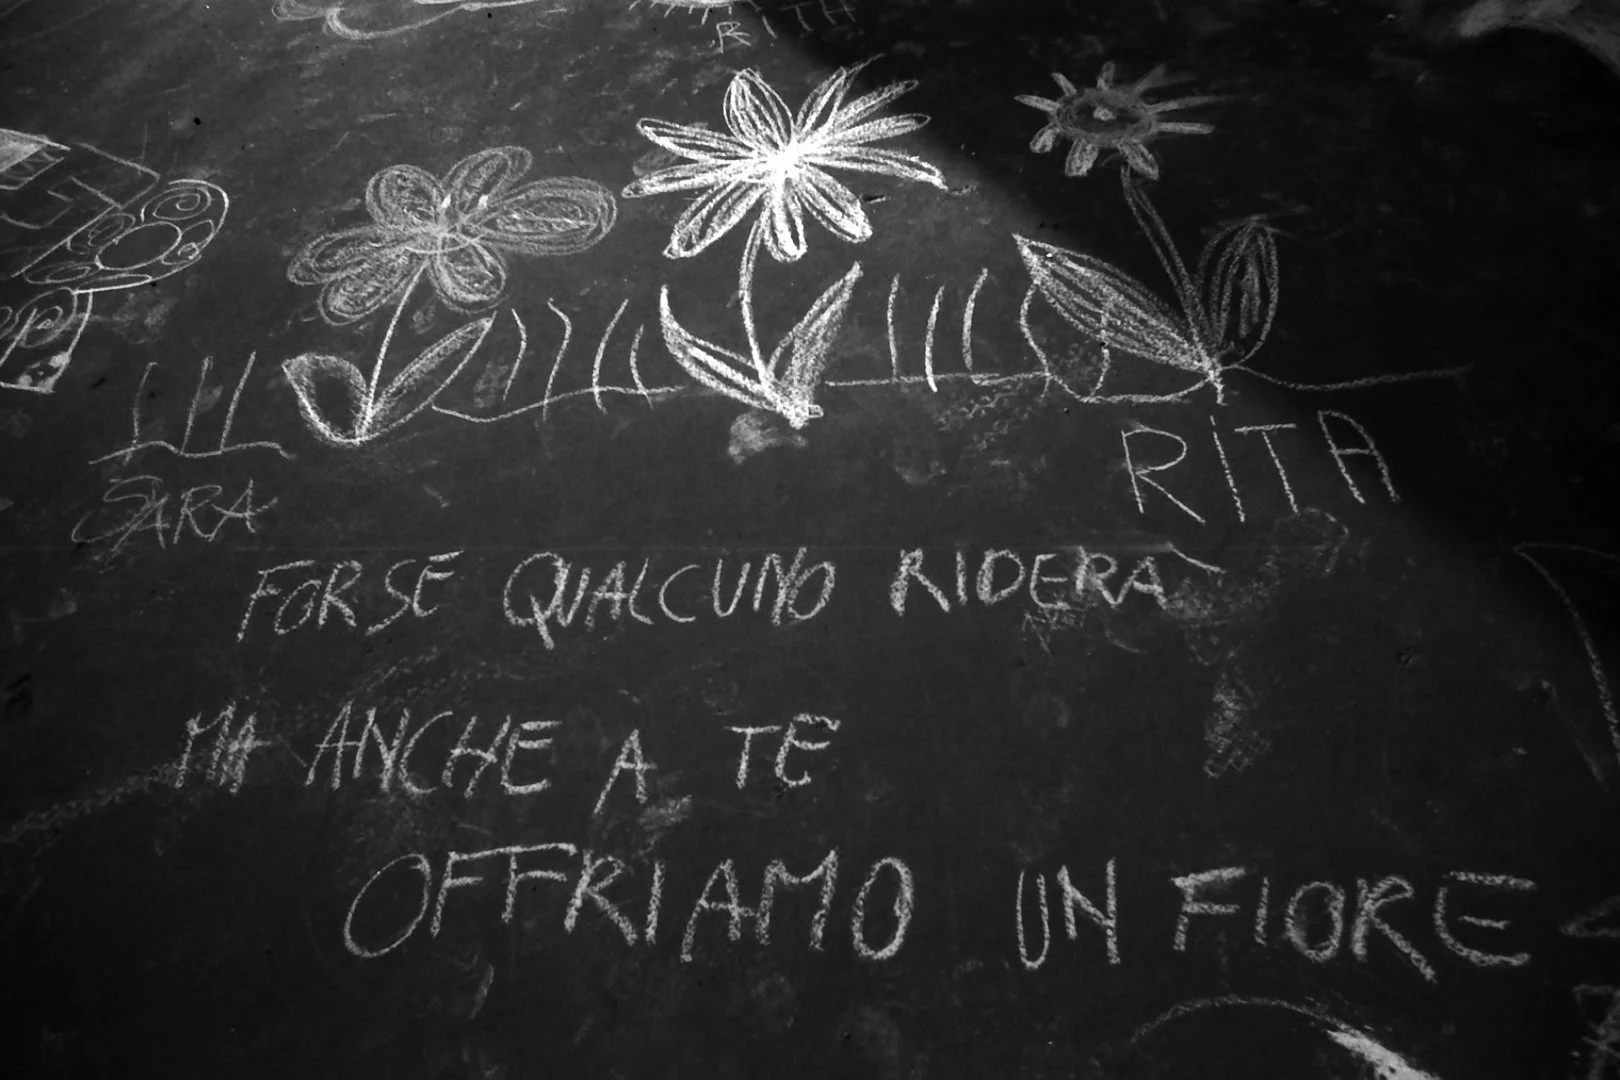 RITA
SARA
FORSE QUALCUNO RIDERA`
MA ANCHE A TE
OFFRIAMO UN FIORE